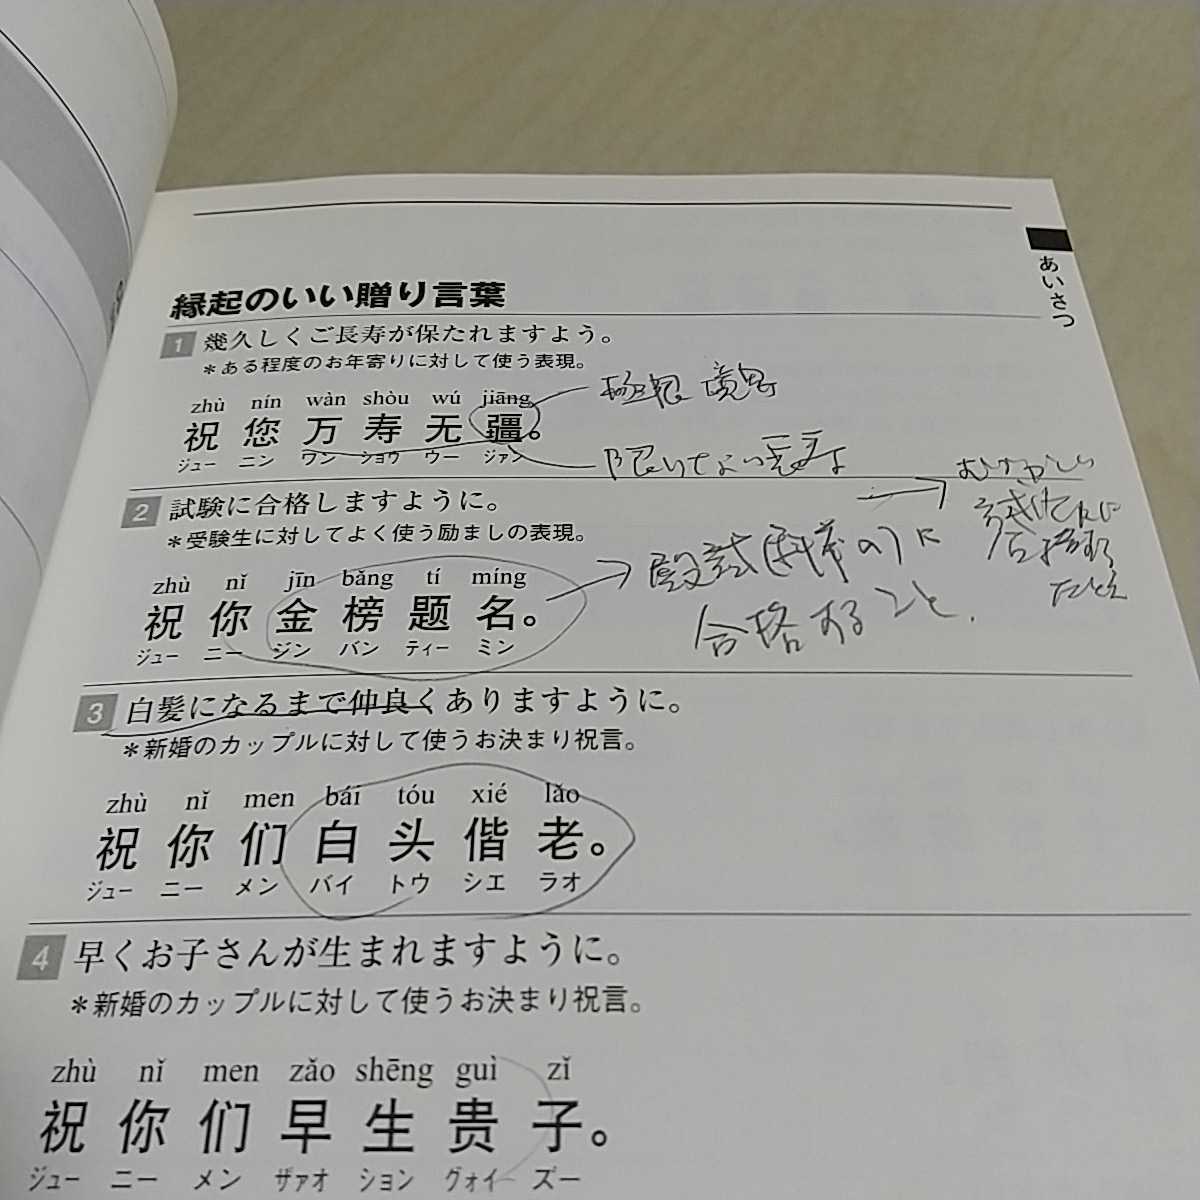 あいさつ
縁起のいい贈り言葉
1 幾久しくご長寿が保たれますよう。
＊ある程度のお年寄りに対して使う表現。
zhù nín wàn shòu wú jiāng
祝 您 万 寿 无 疆。
ジュー ニン ワン ショウ ウー ジァン
極限 境界
限りない長寿
2 試験に合格しますように。
＊受験生に対してよく使う励ましの表現。
zhù nǐ jīn bǎng tí míng
祝 你 金 榜 题 名。
ジュー ニー ジン バン ティー ミン
→ 殿試(科挙の)に
合格すること.
→ むずかしい
試験に
合格する
たとえ
3 白髪になるまで仲良くありますように。
＊新婚のカップルに対して使うお決まり祝言。
zhù nǐ men bái tóu xié lǎo
祝 你 们 白 头 偕 老。
ジュー ニー メン バイ トウ シエ ラオ
4 早くお子さんが生まれますように。
＊新婚のカップルに対して使うお決まり祝言。
zhù nǐ men zǎo shēng guì zǐ
祝 你 们 早 生 贵 子。
ジュー ニー メン ザァオ ション グゥイ ズー